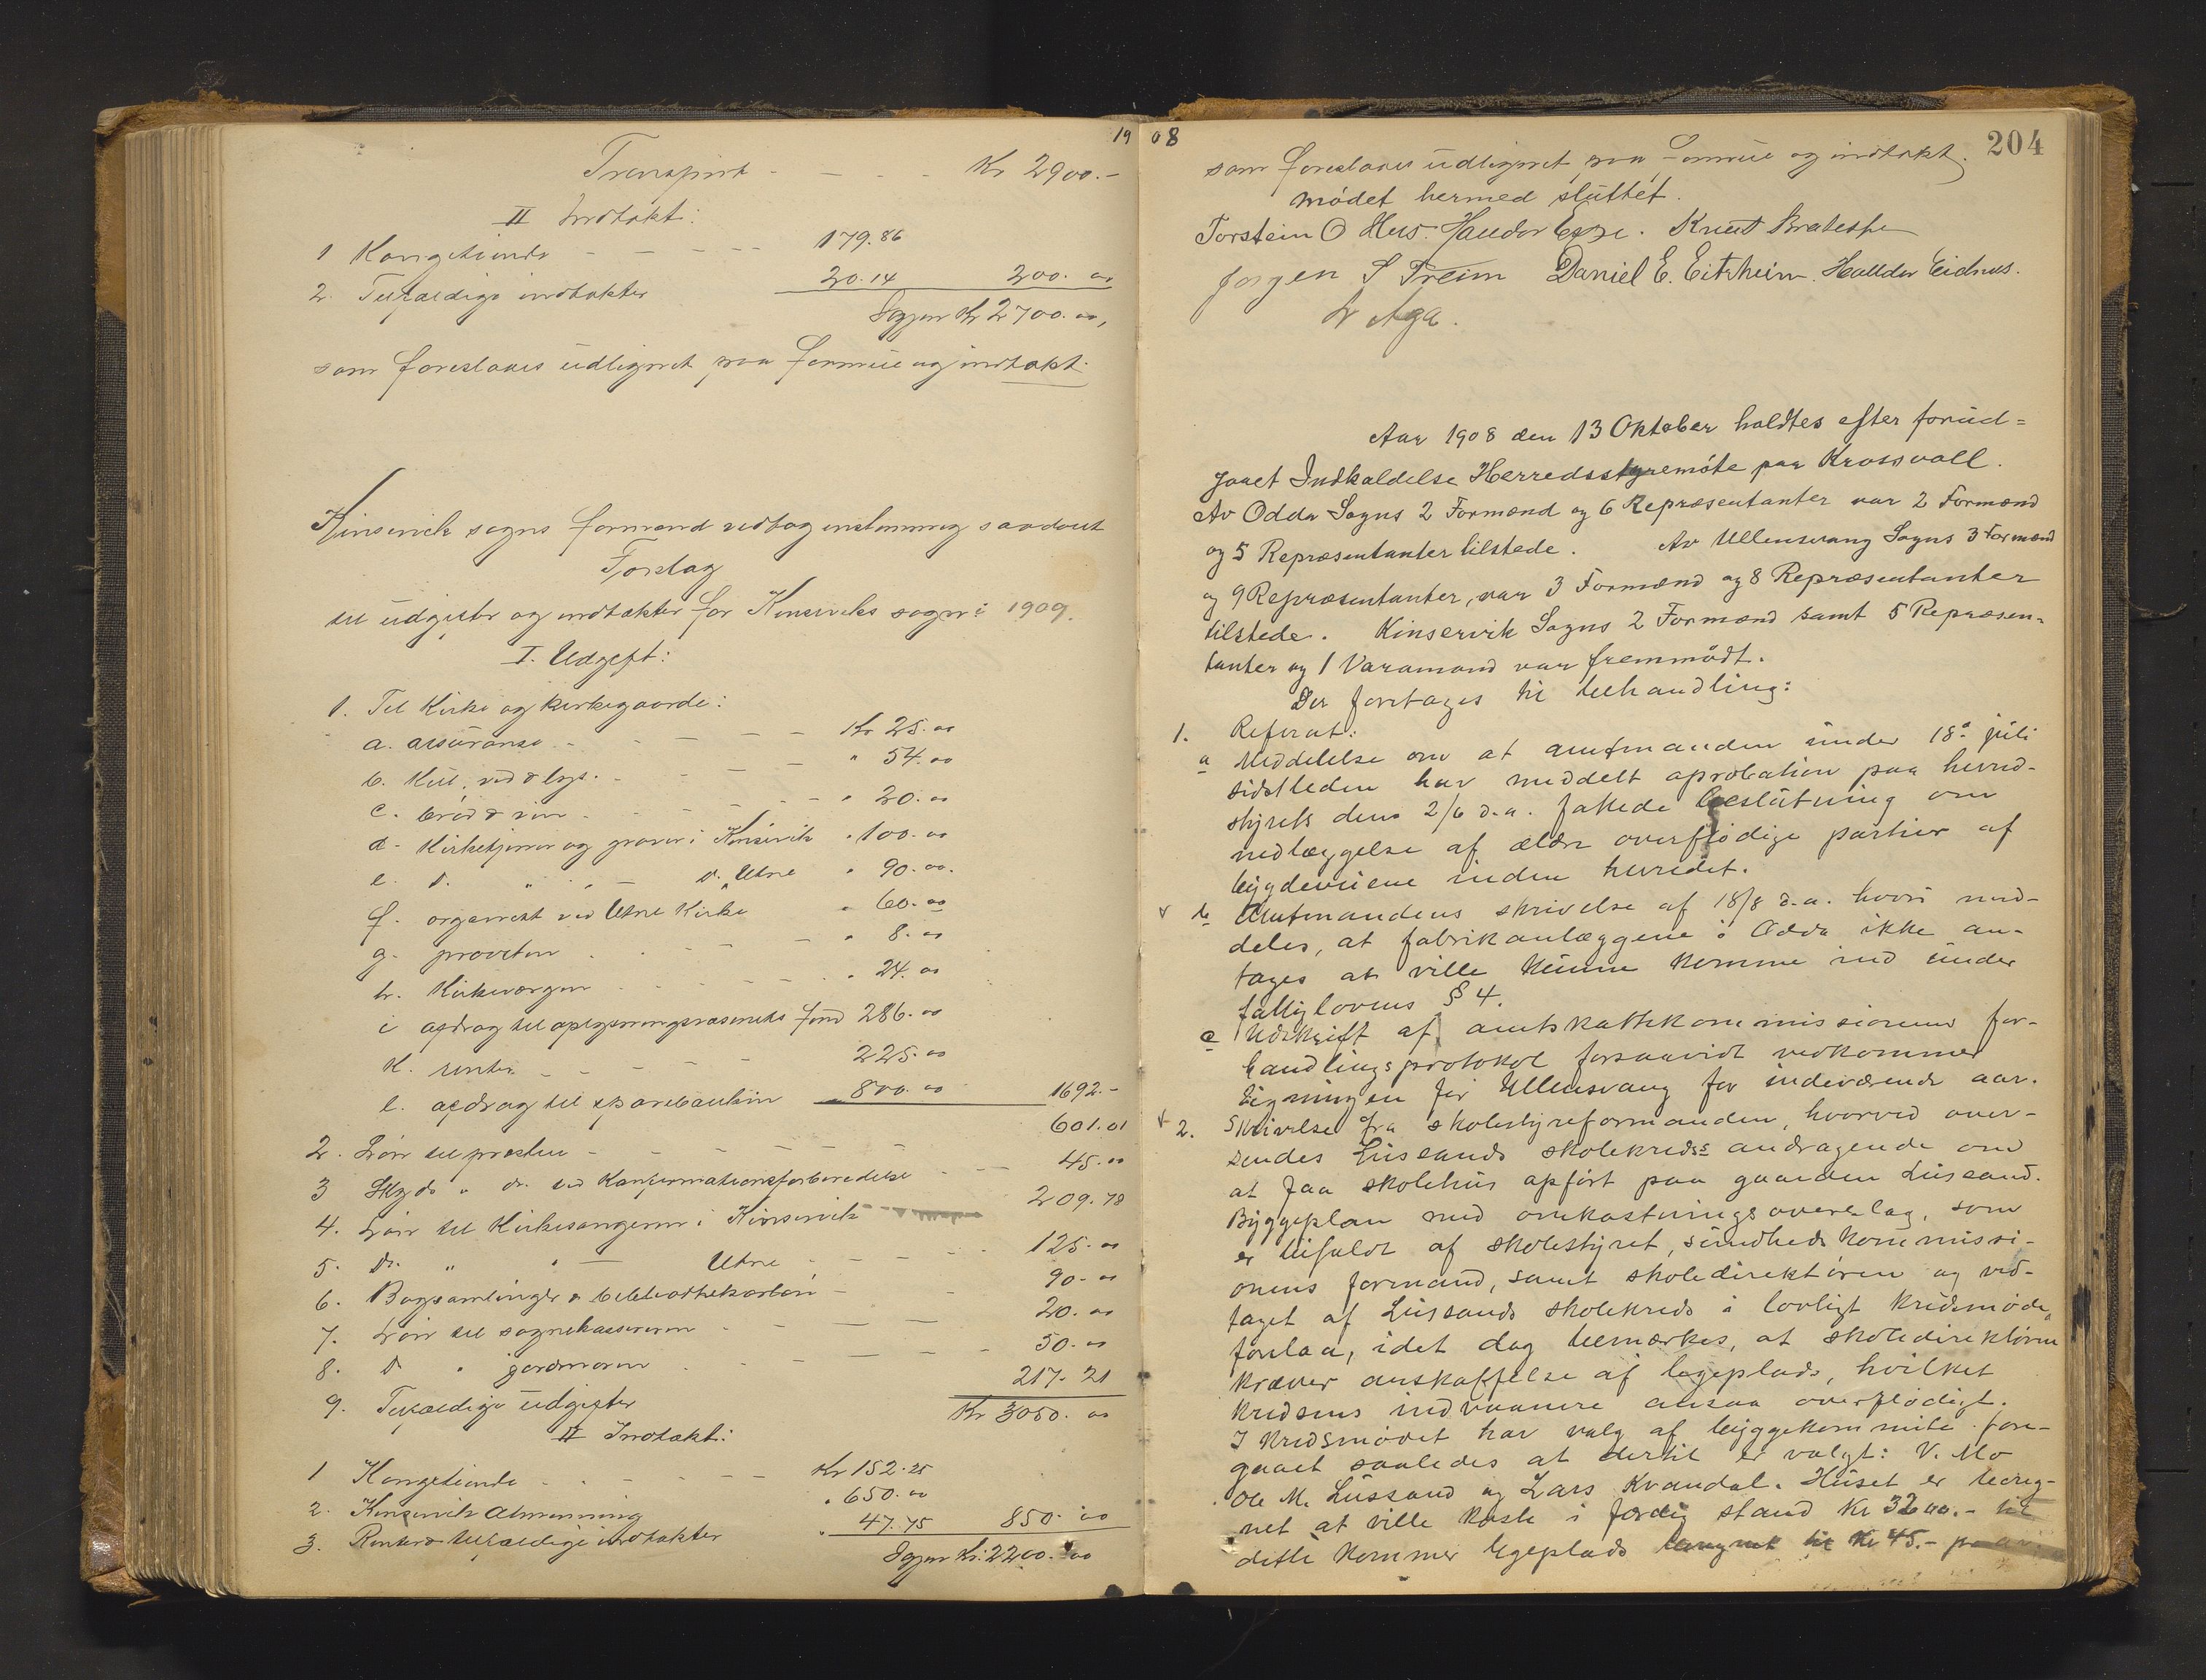 19
Transport - - - - Kr 2900.-
II Indtækt:
1 Kongetiende - - - - 179.86
2. Tilfældige indtækter 20.14 200.00
Igjen Kr 2700.00,
som foreslaaes udlignet paa formue og indtækt.
Kinservik sogns formænd vedtog enstemmig saadant
Forslag
til udgifter og indtækter for Kinserviks sogn i 1909.
I. Udgift:
1. Til Kirke og kirkegaarde:
a. assuranse - - - - - Kr 25.00
b. Kul, ved & lys. - - - - " 54.00
c. brød & vin - - - - - " 20.00
d. Kirketjener og graver i Kinservik " 100.00
e. Do. " " - Do. Utne " 90.00.
f. organist ved Utne Kirke " 60.00
g. provsten - - - - " 8.00
h. Kirkeværgen - - - - " 24.00
i afdrag til oplysningsvæsenets fond 286.00
k. renter - - - - 225.00
l. afdrag til sparebanken 800.00 1692.-
2. Løn til præsten - - - - - 601.01
3 Skyds " do. ved Konfirmationsforberedelse - - - 45.00
4. Løn til Kirkesangeren i Kinservik 209.78
5. Do. " " - Utne - - - - 125.00
6. Bogsamlinger & bibliothekarløn - - 90.00
7. Løn til sognekassereren - - - - 20.00
8. Do " jordmoren - - - - - 50.00
9. Tilfældige udgifter 217.21
Kr 3050.00
II Indtækt:
1 Kongetiende - - - - - Kr 152.25
2. Kinservik Almenning " 650.00
3. Renter & tilfældige indtækter " 47.75 850.00
Igjen Kr. 2200.00
08
204
som foreslaaes udlignet paa formue og indtækt.
mødet hermed sluttet.
Torstein O Hus. Halldor Espe. Knut Bratespe
Jørgen S Freim Daniel E. Eitrheim. Halldor Eidnes.
L Aga.
Aar 1908 den 13 Oktober holdtes efter forud=
gaaet Indkaldelse Herredsstyremøte paa Krossvoll.
Av Odda Sogns 2 Formænd og 6 Repræsentanter var 2 Formænd
og 5 Repræsentanter tilstede. Av Ullensvang Sogns 3 Formænd
og 9 Repræsentanter, var 3 Formænd og 8 Repræsentanter
tilstede. Kinservik Sogns 2 Formænd samt 5 Repræsen=
tanter og 1 Varamand var fremmødt.
Der foretages til behandling:
1. Referat:
a Meddelelse om at amtmanden under 18de juli
sidstleden har meddelt aprobation paa herred-
styrets den 2/6 d.a. fattede beslutning om
nedlæggelse af ældre overflødige partier af
bygdeveiene inden herredet.
b Amtmandens skrivelse af 18/8 d.a. hvori med-
deles, at fabrikanlæggene i Odda ikke an-
tages at ville kunne komme ind under
fattiglovens § 4.
c Udskrift af amtskattekommissionens for-
handlingsprotokol forsaavidt vedkommer
ligningen for Ullensvang for indeværende aar.
2. Skrivelse fra skolestyreformanden, hvorved over-
sendes Lussands skolekreds's andragende om
at faa skolehus opført paa gaarden Lussand.
Byggeplan med omkostningsoverslag, som
er bifaldt af skolestyret, sundhedskommissi-
onens formand, samt skoledirektøren og ved-
taget af Lussands skolekreds i lovligt kredsmøde,
forelaa, idet dog bemærkes, at skoledirektøren
kræver anskaffelse af legeplads, hvilket
kredsens indvaanere ansaa overflødigt.
I kredsmødet har valg af byggekommite fore-
gaaet saaledes at dertil er valgt: V. Mo
Ole M. Lussand og Lars Kvandal. Huset er bereg-
net at ville koste i færdig stand Kr 3200.- til
dette kommer legeplads beregnet til Kr 45.-